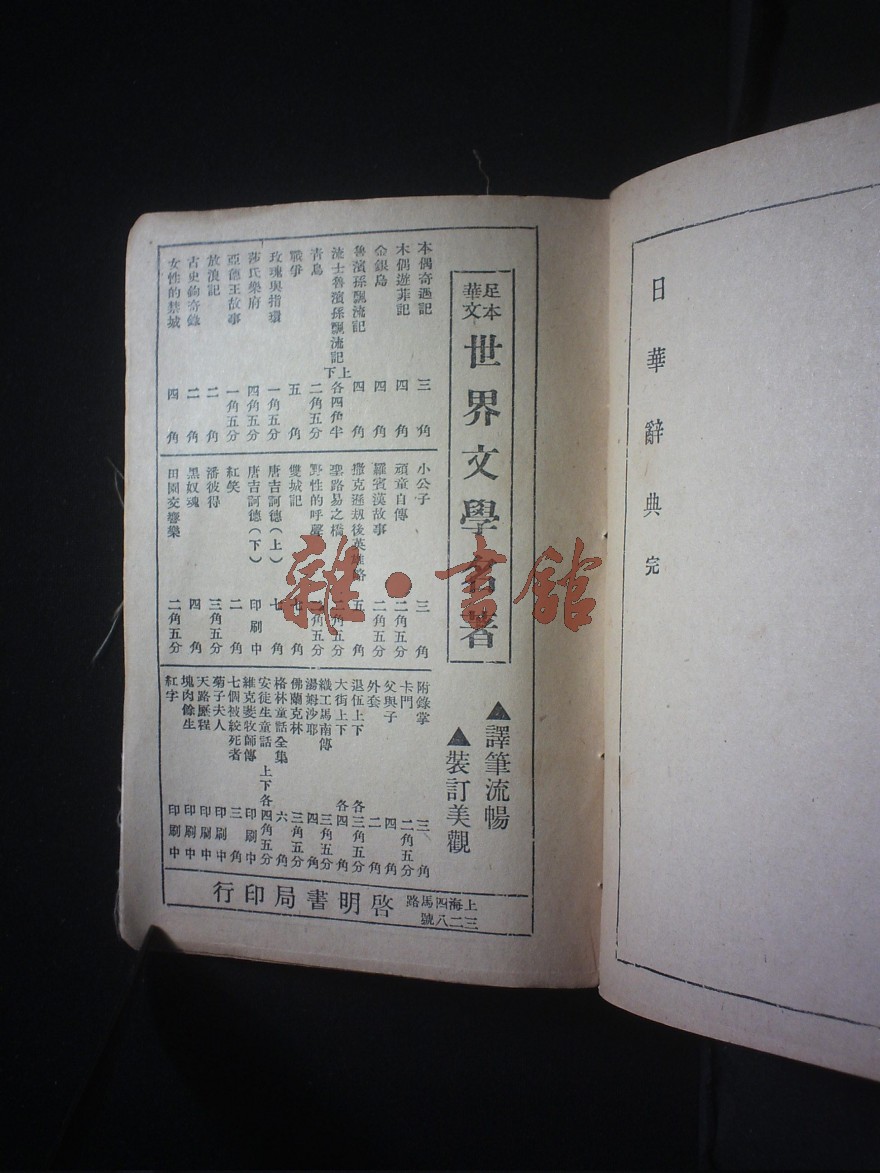 日華辭典 完
足本
華文
世界文學名著
▲譯筆流暢
▲裝訂美觀
木偶奇遇記 三角
木偶遊菲記 四角
金銀島 四角
魯濱孫飄流記 四角
瑞士魯濱孫飄流記上下 各四角半
青鳥 二角五分
戰爭 五角
玫瑰與指環 一角五分
莎氏樂府 四角五分
亞德王故事 一角五分
放浪記 二角
古史鉤奇錄 二角
女性的禁城 四角
小公子 三角
頑童自傳 二角五分
羅賓漢故事 二角五分
撒克遜刼後英雄略 五角
聖路易之橋 二角五分
野性的呼聲 二角五分
雙城記 七角
唐吉訶德(上) 七角
唐吉訶德(下) 印刷中
紅笑 二角
潘彼得 三角五分
黑奴魂 四角
田園交響樂 二角五分
附錄掌 三角
卡門 二角五分
父與子 四角
外套 二角
退伍上下 各三角五分
大街上下 各四角
織工馬南傳 三角五分
湯姆沙耶 四角
佛蘭克林 三角五分
格林童話全集 六角
安徒生童話上下 各四角五分
維克斐牧師傳 印刷中
七個被絞死者 三角
菊子夫人 印刷中
天路歷程 印刷中
塊肉餘生 印刷中
紅字 印刷中
上海四馬路
三二八號
啓明書局印行
雜·書館